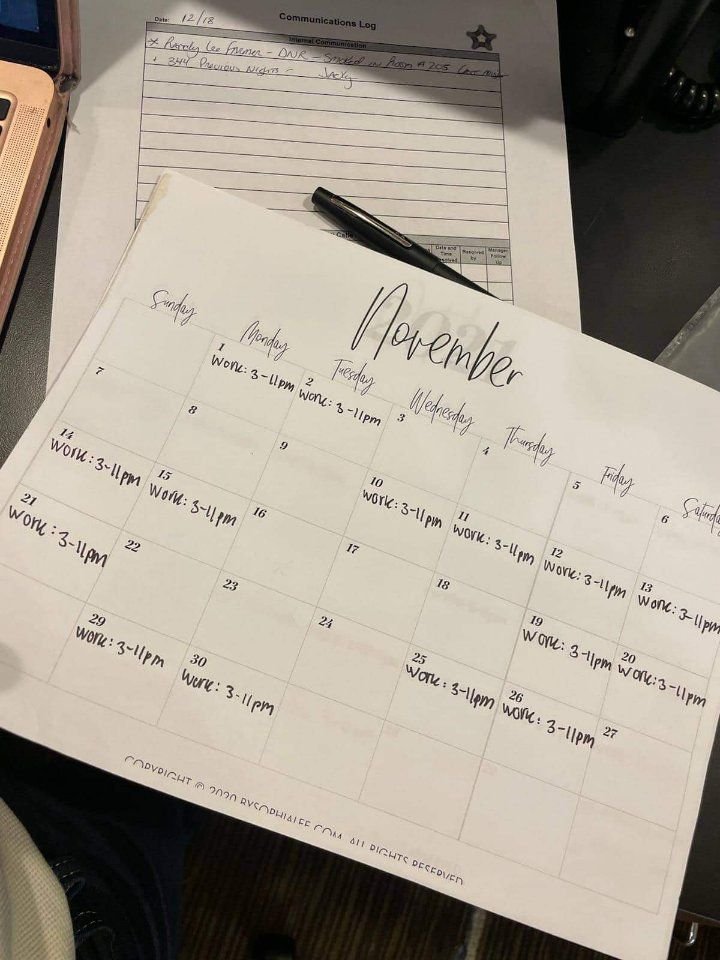 Communications Log
Date: 12/18
Internal Communication
Lee - DNR - Smoked in Room # 205
344 Previous Nights - Jacky
Date and Time
Resolved by
Manager Follow Up
November
Sunday Monday Tuesday Wednesday Thursday Friday
1 Work: 3-11pm
2 Work: 3-11pm
3
4
5
6
7
8
9
10 Work: 3-11pm
11 Work: 3-11pm
12 Work: 3-11pm
13 Work: 3-11pm
14 Work: 3-11pm
15 Work: 3-11pm
16
17
18
19 Work: 3-11pm
20 Work: 3-11pm
21 Work: 3-11pm
22
23
24
25 Work: 3-11pm
26 Work: 3-11pm
27
29 Work: 3-11pm
30 Work: 3-11pm
COPYRIGHT © 2020 BYSOPHIALEE.COM. ALL RIGHTS RESERVED